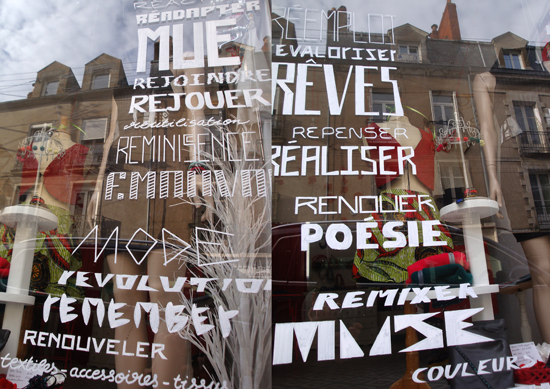 RÉADAPTER
MUE
REJOINDRE
REJOUER
réutilisation
RÉMINISCENCE
MODE
REVOLUTION
remember
RENOUVELER
textiles-accessoires-tissus
RÉEMPLOI
REVALORISER
RÊVES
REPENSER
RÉALISER
RENOUER
POÉSIE
REMIXER
MUSE
COULEURS